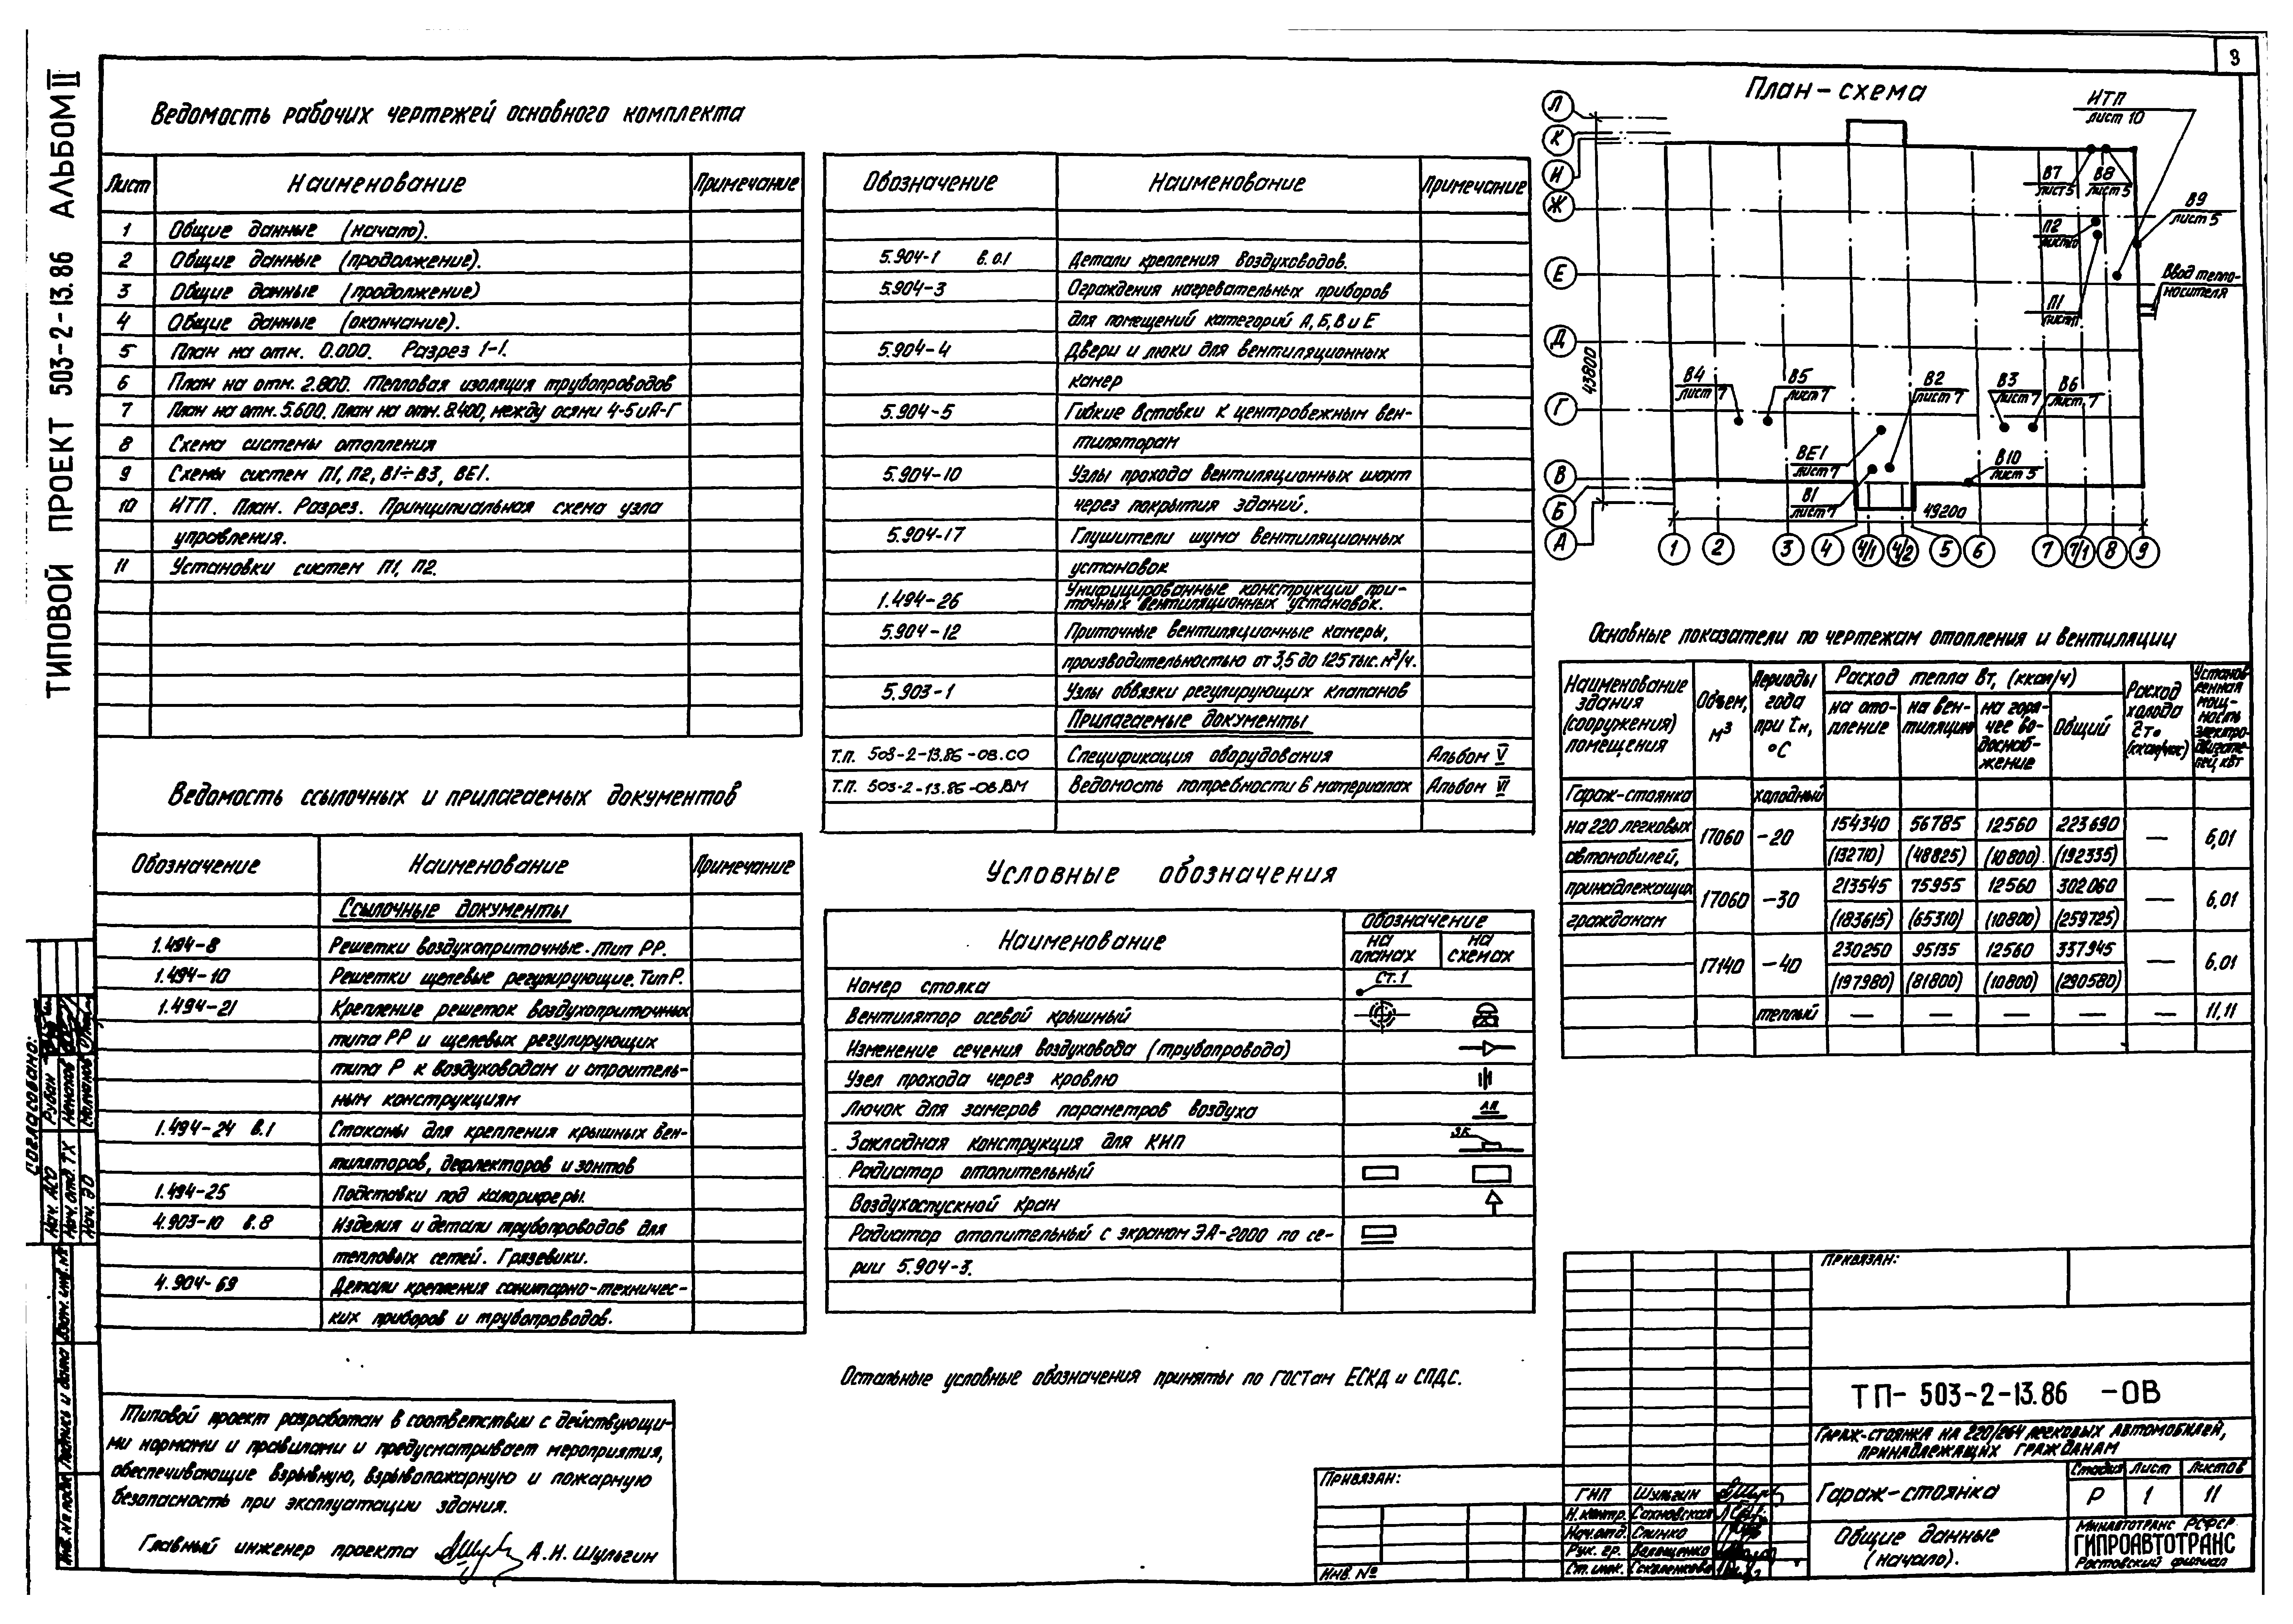 3
ТИПОВОЙ ПРОЕКТ 503-2-13.86 АЛЬБОМ II
Ведомость рабочих чертежей основного комплекта
Лист Наименование Примечание
1 Общие данные (начало).
2 Общие данные (продолжение).
3 Общие данные (продолжение)
4 Общие данные (окончание).
5 План на отм. 0.000. Разрез 1-1.
6 План на отм. 2.800. Тепловая изоляция трубопроводов
7 План на отм. 5.600. План на отм. 8.400, между осями 4-5 и А-Г
8 Схема системы отопления
9 Схемы систем П1, П2, В1÷В3, ВЕ1.
10 ИТП. План. Разрез. Принципиальная схема узла
управления.
11 Установки систем П1, П2.
Ведомость ссылочных и прилагаемых документов
Обозначение Наименование Примечание
Ссылочные документы
1.494-8 Решетки воздухоприточные. Тип РР.
1.494-10 Решетки щелевые регулирующие. Тип Р.
1.494-21 Крепление решеток воздухоприточных
типа РР и щелевых регулирующих
типа Р к воздуховодам и строитель-
ным конструкциям
1.494-24 в.1 Стаканы для крепления крышных вен-
тиляторов, дефлекторов и зонтов
1.494-25 Подставки под калориферы.
4.903-10 в.8 Изделия и детали трубопроводов для
тепловых сетей. Грязевики.
4.904-69 Детали крепления санитарно-техничес-
ких приборов и трубопроводов.
Типовой проект разработан в соответствии с действующи-
ми нормами и правилами и предусматривает мероприятия,
обеспечивающие взрывную, взрывопожарную и пожарную
безопасность при эксплуатации здания.
Главный инженер проекта А.Н. Шульгин
Обозначение Наименование Примечание
5.904-1 в.0.1 Детали крепления воздуховодов.
5.904-3 Ограждения нагревательных приборов
для помещений категорий А, Б, В и Е
5.904-4 Двери и люки для вентиляционных
камер
5.904-5 Гибкие вставки к центробежным вен-
тиляторам
5.904-10 Узлы прохода вентиляционных шахт
через покрытия зданий.
5.904-17 Глушители шума вентиляционных
установок
1.494-26 Унифицированные конструкции при-
точных вентиляционных установок.
5.904-12 Приточные вентиляционные камеры,
производительностью от 3,5 до 125 тыс. м³/ч.
5.903-1 Узлы обвязки регулирующих клапанов
Прилагаемые документы
Т.П. 503-2-13.86-ОВ.СО Спецификация оборудования Альбом V
Т.П. 503-2-13.86-ОВ.ВМ Ведомость потребности в материалах Альбом VI
Условные обозначения
Наименование Обозначение
на планах на схемах
Номер стояка Ст.1
Вентилятор осевой крышный
Изменение сечения воздуховода (трубопровода)
Узел прохода через кровлю
Лючок для замеров параметров воздуха ЛП
Закладная конструкция для КИП ЗК
Радиатор отопительный
Воздухоспускной кран
Радиатор отопительный с экраном ЭА-2000 по се-
рии 5.904-3.
Остальные условные обозначения приняты по ГОСТам ЕСКД и СПДС.
План-схема
Л
К
И
Ж
Е
Д
Г
В
Б
А
43800
ИТП
лист 10
В7
лист 5
В8
лист 5
В9
лист 5
П2
П1
Ввод тепло-
носителя
В4
лист 7
В5
лист 7
В2
лист 7
В3
лист 7
В6
лист 7
ВЕ1
лист 7
В1
лист 7
В10
лист 5
49200
1 2 3 4 4/1 4/2 5 6 7 7/1 8 9
Основные показатели по чертежам отопления и вентиляции
Наименование здания (сооружения) помещения
Объем, м³
Периоды года при tн, °С
Расход тепла Вт, (ккал/ч)
на ото-пление на вен-тиляцию на горя-чее во-доснаб-жение Общий
Расход холода
Установ-ленная мощ-ность электро-двигате-лей, кВт
Гараж-стоянка холодный
на 220 легковых 17060 -20 154340 56785 12560 223690 — 6,01
автомобилей, (132710) (48825) (10800) (192335)
принадлежащих 17060 -30 213545 75955 12560 302060 — 6,01
гражданам (183615) (65310) (10800) (259725)
17140 -40 230250 95135 12560 337945 — 6,01
(197980) (81800) (10800) (290580)
теплый — — — — — 11,11
Привязан:
ТП- 503-2-13.86 -ОВ
Гараж-стоянка на 220/264 легковых автомобилей,
принадлежащих гражданам
Гараж-стоянка
Стадия Лист Листов
Р 1 11
Общие данные
(начало).
Минавтотранс РСФСР
ГИПРОАВТОТРАНС
Ростовский филиал
ГИП Шульгин
Н.контр. Сахновская
Нач.отд. Слинко
Рук. гр. Волощенко
Ст. инж.
Привязан:
Инв. №
Согласовано:
Нач. АСО Рубан
Нач. отд. ТХ
Нач. ЭО
Взам. инв. №
Подпись и дата
Инв. № подл.